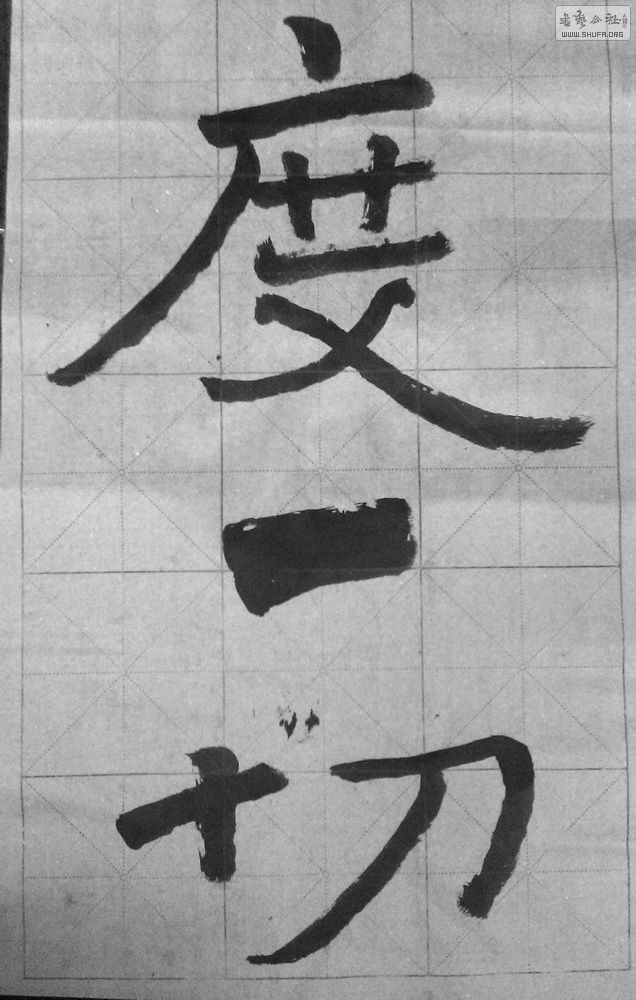 度一切
書藝公社
WWW.SHUFA.ORG